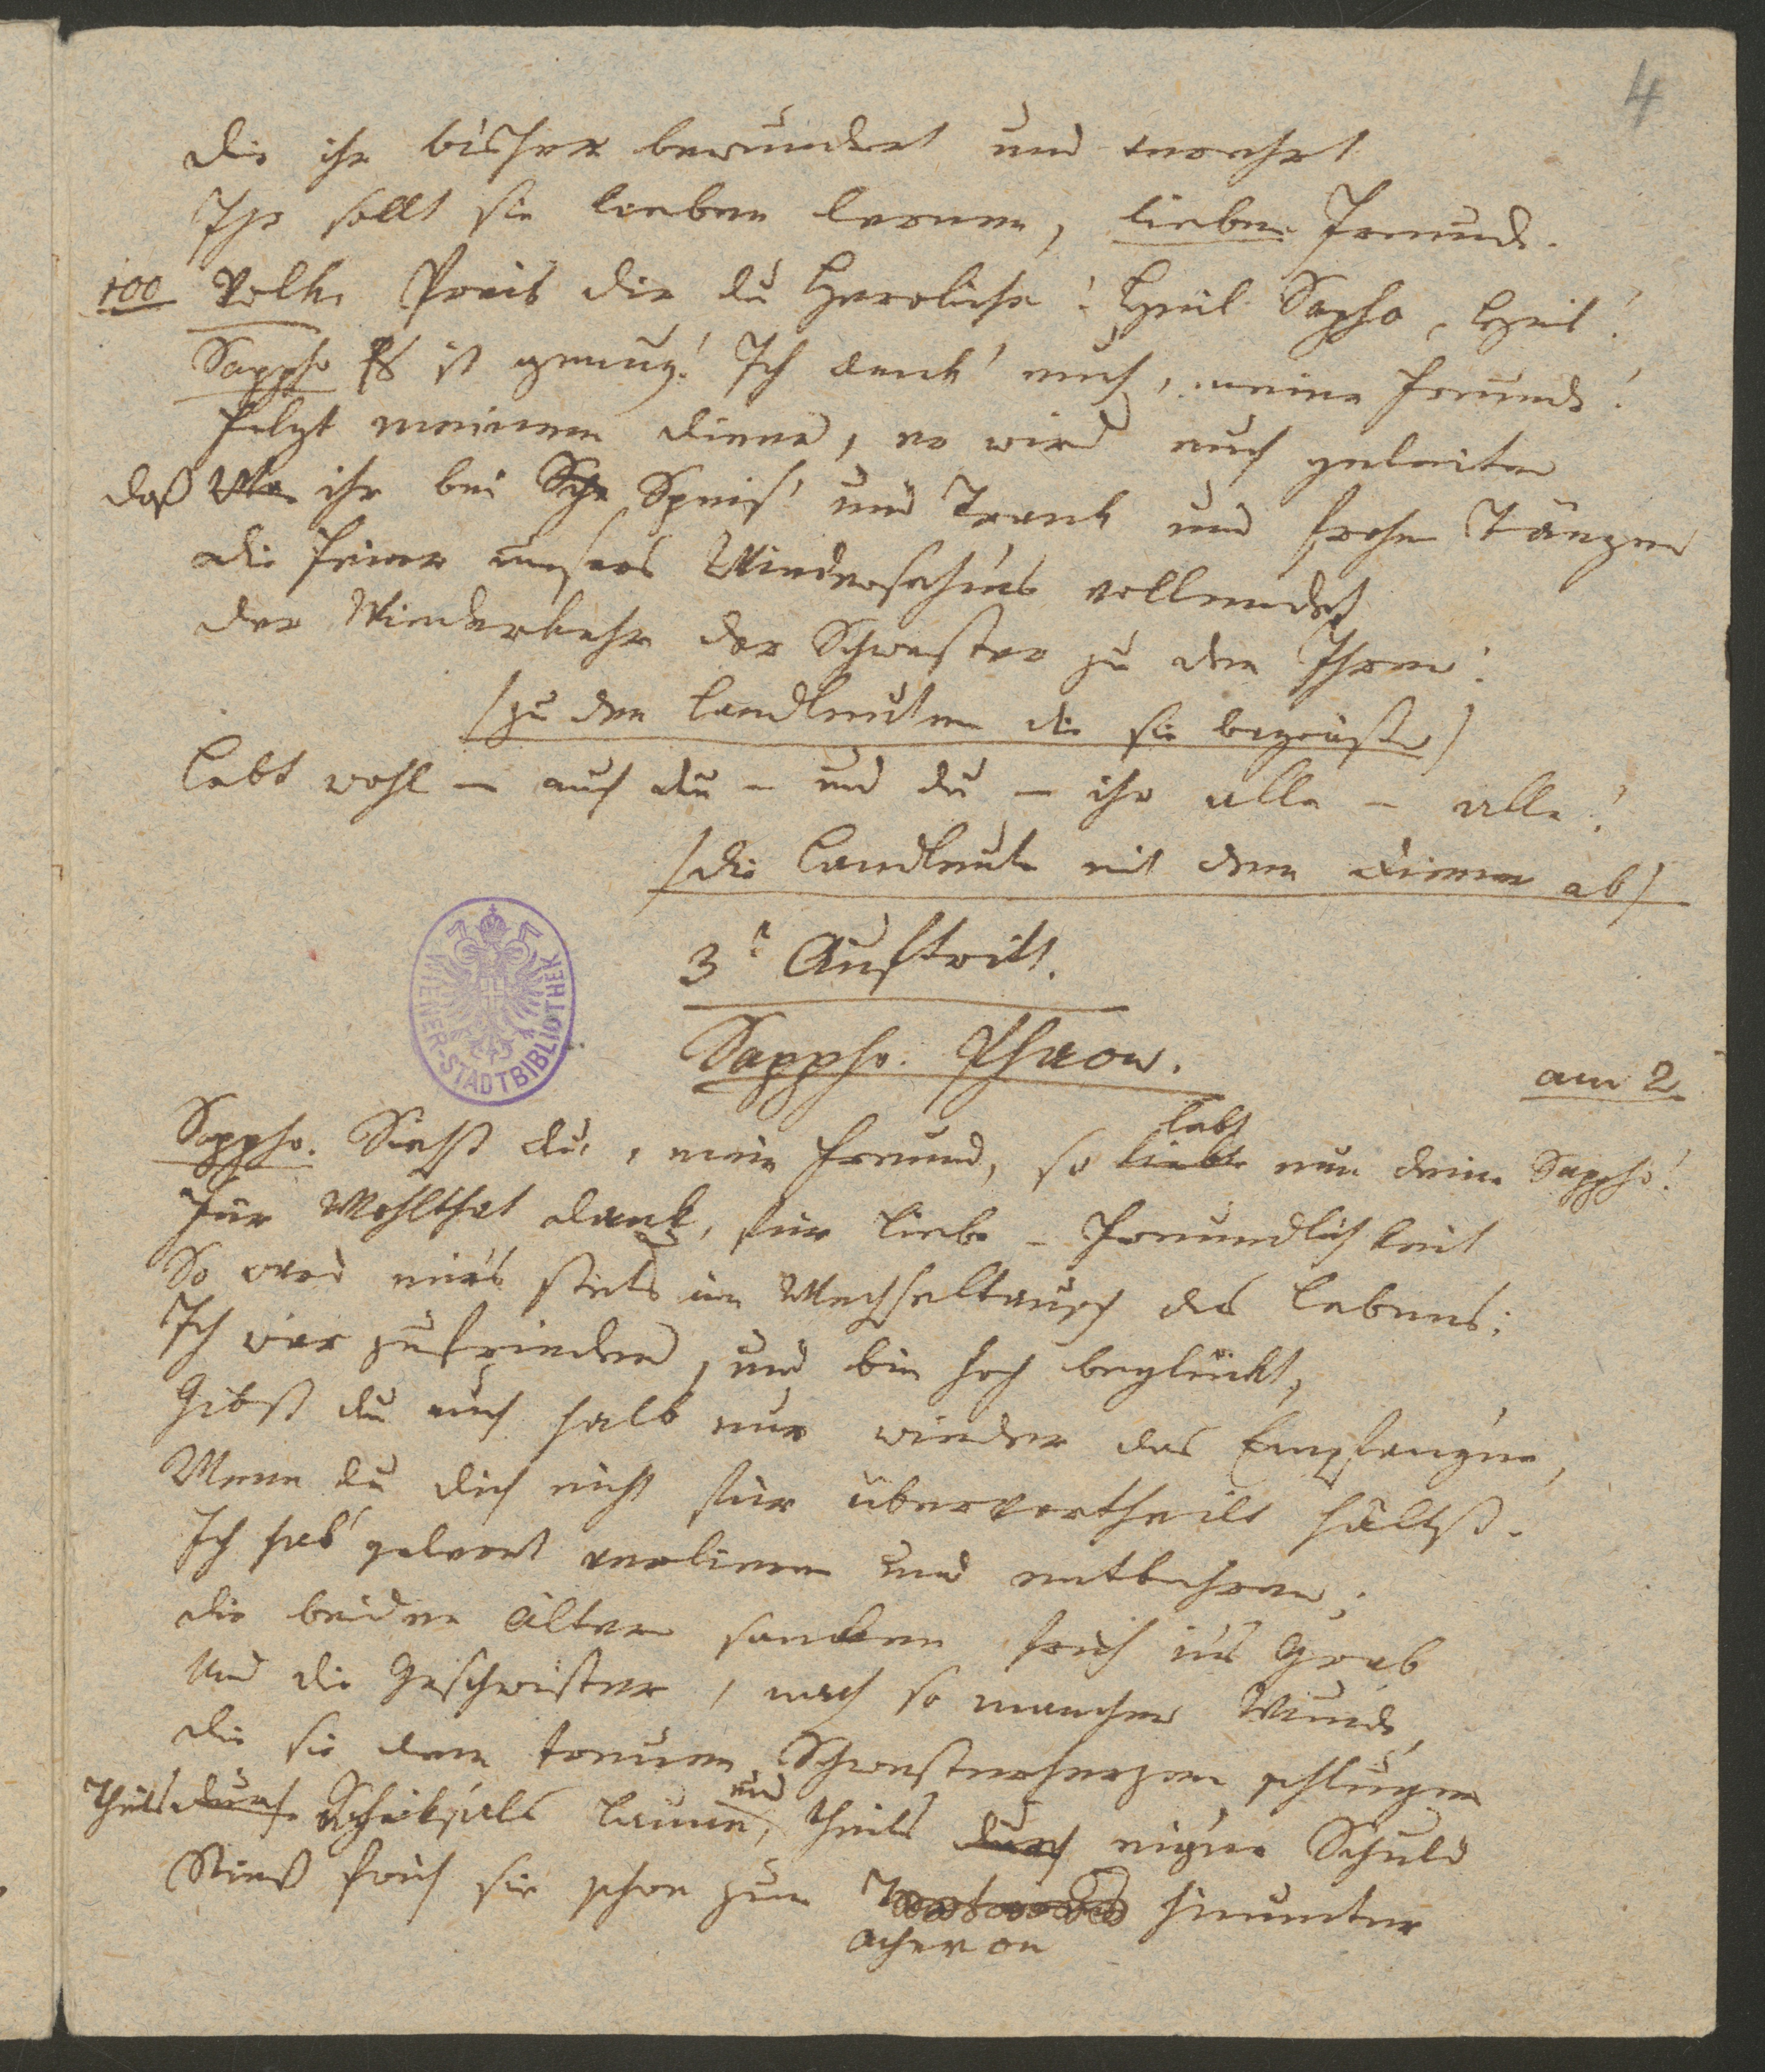 4
die ihr bisher bewundert und verehrt
Ihr sollt sie lieben lernen, lieben Freunde.
100 Volk. Preis dir du Herrliche! Heil Sapho, Heil!
Sappho Es ist genug! Ich dank' euch, meine Freunde!
Folgt meinem Diener, er wird euch geleiten
daß ihr bei Speis' und Trank und frohen Tänzen
die Feier unsers Wiederseh'ns vollendet
der Wiederkehr der Schwester zu den Ihren!
(zu den Landleuten die sie begrüßen)
Lebt wohl – auch du – und du – ihr alle – alle!
(die Landleute mit dem Diener ab)
3r Auftritt.
WIENER-STADTBIBLIOTHEK
Sappho. Phaon.
am 2
lebt
Sappho. Siehst du, mein Freund, so liebte nun deine Sappho!
Für Wohlthat Dank, für Liebe – Freundlichkeit
So ward mir's stets im Wechseltausch des Lebens;
Ich war zufrieden, und bin hoch beglückt,
Gibst du auch halb nur wieder das Empfang'ne,
Wenn du dich nicht für übervortheilt hältst.
Ich hab' gelernt verlieren und entbehren;
die beiden Ältern sanken früh ins Grab
Und die Geschwister, nach so mancher Wunde,
die sie dem treuen Schwesterherzen schlugen
und
Theils durch Schiksals Laune, theils durch eigne Schuld
Stieß früh sie schon zum hinunter
Acheron